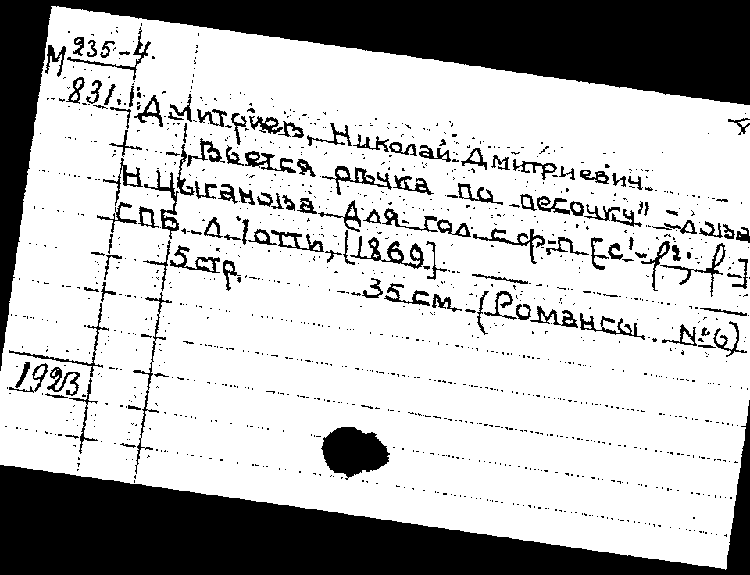 М 235-4.
831.
Дмитриев, Николай Дмитриевич.
"Вьется речка по песочку" – слова
Н. Цыганова. Для гол. с ф.-п. [c¹-f²; f.]
СПб. А. Іотти, [1869]
5 стр. 35 см. (Романсы... № 6)
1923.